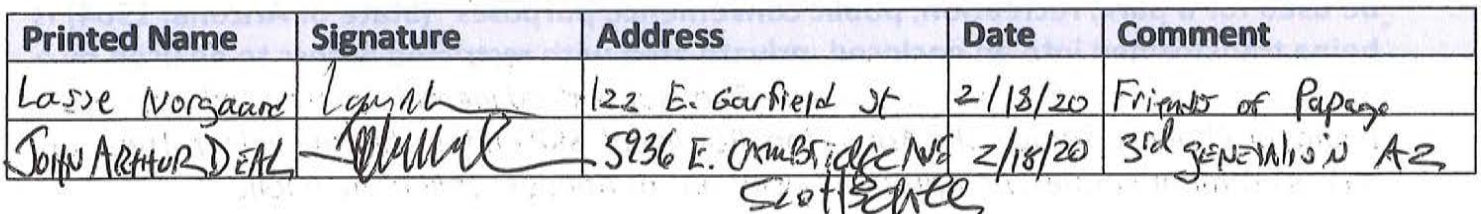 Printed Name Signature Address Date Comment
Lasse Norgaard 122 E. Garfield St 2/18/20 Friends of Papago
JOHN ARTHUR DEAL 5936 E. CAMBridge AVE 2/18/20 3rd GENERATION AZ
Scottsdale